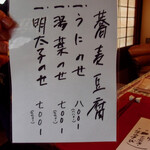 蕎麦豆腐
一、うにのせ 八〇〇円
一、湯葉のせ 七〇〇円
一、明太子のせ 七〇〇円